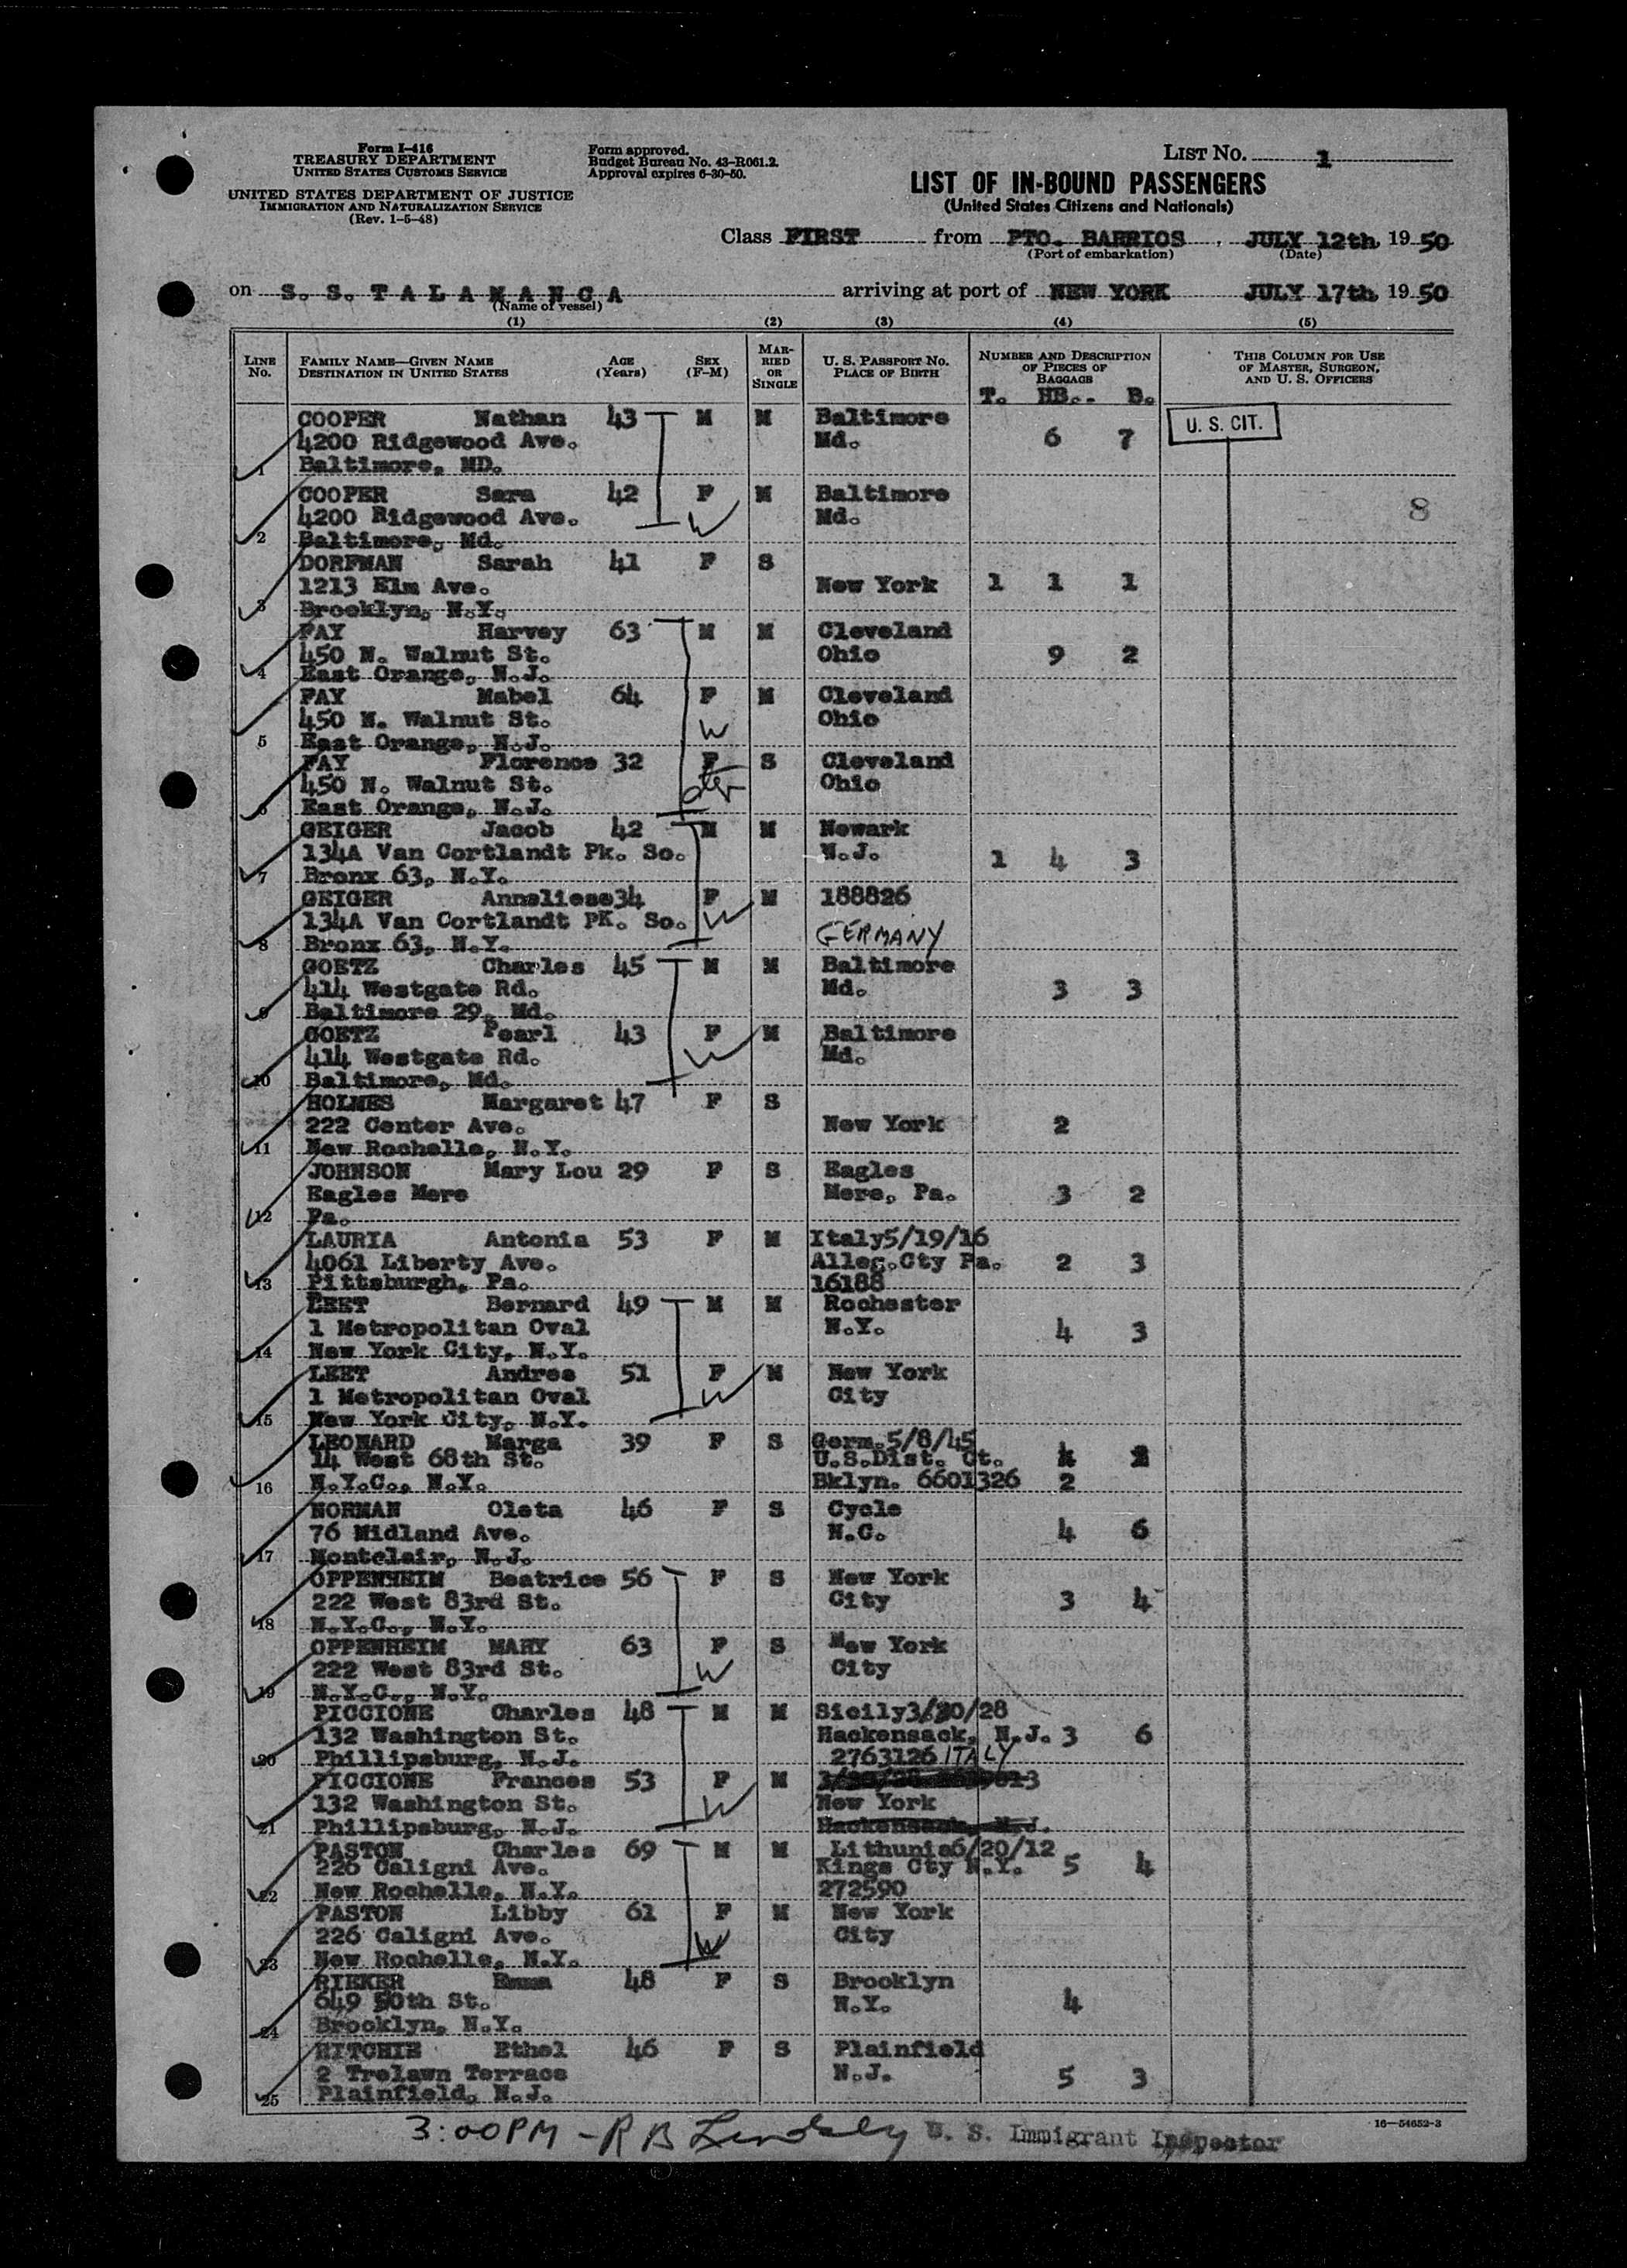 Form I-416
TREASURY DEPARTMENT
UNITED STATES CUSTOMS SERVICE
UNITED STATES DEPARTMENT OF JUSTICE
IMMIGRATION AND NATURALIZATION SERVICE
(Rev. 1-5-48)
Form approved.
Budget Bureau No. 43-R061.2.
Approval expires 6-30-50.
LIST NO. 1
LIST OF IN-BOUND PASSENGERS
(United States Citizens and Nationals)
Class FIRST from PTO. BARRIOS, JULY 12th, 19 50
(Port of embarkation) (Date)
on S. S. T A L A M A N C A arriving at port of NEW YORK JULY 17th, 19 50
(Name of vessel)
(1) (2) (3) (4) (5)
LINE No. FAMILY NAME—GIVEN NAME DESTINATION IN UNITED STATES AGE (Years) SEX (F-M) MARRIED OR SINGLE U. S. PASSPORT NO. PLACE OF BIRTH NUMBER AND DESCRIPTION OF PIECES OF BAGGAGE THIS COLUMN FOR USE OF MASTER, SURGEON, AND U. S. OFFICERS
T. HB.. B.
COOPER Nathan 43 M M Baltimore U. S. CIT.
4200 Ridgewood Ave. Md. 6 7
1 Baltimore, MD.
COOPER Sara 42 F M Baltimore
4200 Ridgewood Ave. W Md. 8
2 Baltimore, Md.
DORFMAN Sarah 41 F S
1213 Elm Ave. New York 1 1 1
3 Brooklyn, N.Y.
FAY Harvey 63 M M Cleveland
450 N. Walnut St. Ohio 9 2
4 East Orange, N.J.
FAY Mabel 64 F M Cleveland
450 N. Walnut St. W Ohio
5 East Orange, N.J.
FAY Florence 32 F S Cleveland
450 N. Walnut St. dtr Ohio
6 East Orange, N.J.
GEIGER Jacob 42 M M Newark
134A Van Cortlandt Pk. So. N.J. 1 4 3
7 Bronx 63, N.Y.
GEIGER Anneliese34 F M 188826
134A Van Cortlandt PK. So. W GERMANY
8 Bronx 63, N.Y.
GOETZ Charles 45 M M Baltimore
414 Westgate Rd. Md. 3 3
9 Baltimore 29, Md.
GOETZ Pearl 43 F M Baltimore
414 Westgate Rd. W Md.
10 Baltimore, Md.
HOLMES Margaret 47 F S
222 Center Ave. New York 2
11 New Rochelle, N.Y.
JOHNSON Mary Lou 29 F S Eagles
Eagles Mere Mere, Pa. 3 2
12 Pa.
LAURIA Antonia 53 F M Italy5/19/16
4061 Liberty Ave. Alleg.Cty Pa. 2 3
13 Pittsburgh, Pa. 16188
LEET Bernard 49 M M Rochester
1 Metropolitan Oval N.Y. 4 3
14 New York City, N.Y.
LEET Andree 51 F M New York
1 Metropolitan Oval W City
15 New York City, N.Y.
LEONARD Marga 39 F S Germ.5/8/45
14 West 68th St. U.S.Dist. Ct.
16 N.Y.C., N.Y. Bklyn. 6601326 2
NORMAN Oleta 46 F S Cycle
76 Midland Ave. N.C. 4 6
17 Montclair, N.J.
OPPENHEIM Beatrice 56 F S New York
222 West 83rd St. City 3 4
18 N.Y.C., N.Y.
OPPENHEIM MARY 63 F S New York
222 West 83rd St. W City
19 N.Y.C., N.Y.
PICCIONE Charles 48 M M Sicily3/20/28
132 Washington St. Hackensack, N.J. 3 6
20 Phillipsburg, N.J. 2763126 ITALY
PICCIONE Frances 53 F M
132 Washington St. W New York
21 Phillipsburg, N.J. Hackensack, N.J.
PASTON Charles 69 M M Lithunia6/20/12
226 Caligni Ave. Kings Cty N.Y. 5 4
22 New Rochelle, N.Y. 272590
PASTON Libby 61 F M New York
226 Caligni Ave. W City
23 New Rochelle, N.Y.
RIEKER Emma 48 F S Brooklyn
649 50th St. N.Y. 4
24 Brooklyn, N.Y.
RITCHIE Ethel 46 F S Plainfield
2 Trelawn Terrace N.J. 5 3
25 Plainfield, N.J.
3:00PM - R B Lindsley U. S. Immigrant Inspector
16—54652-3